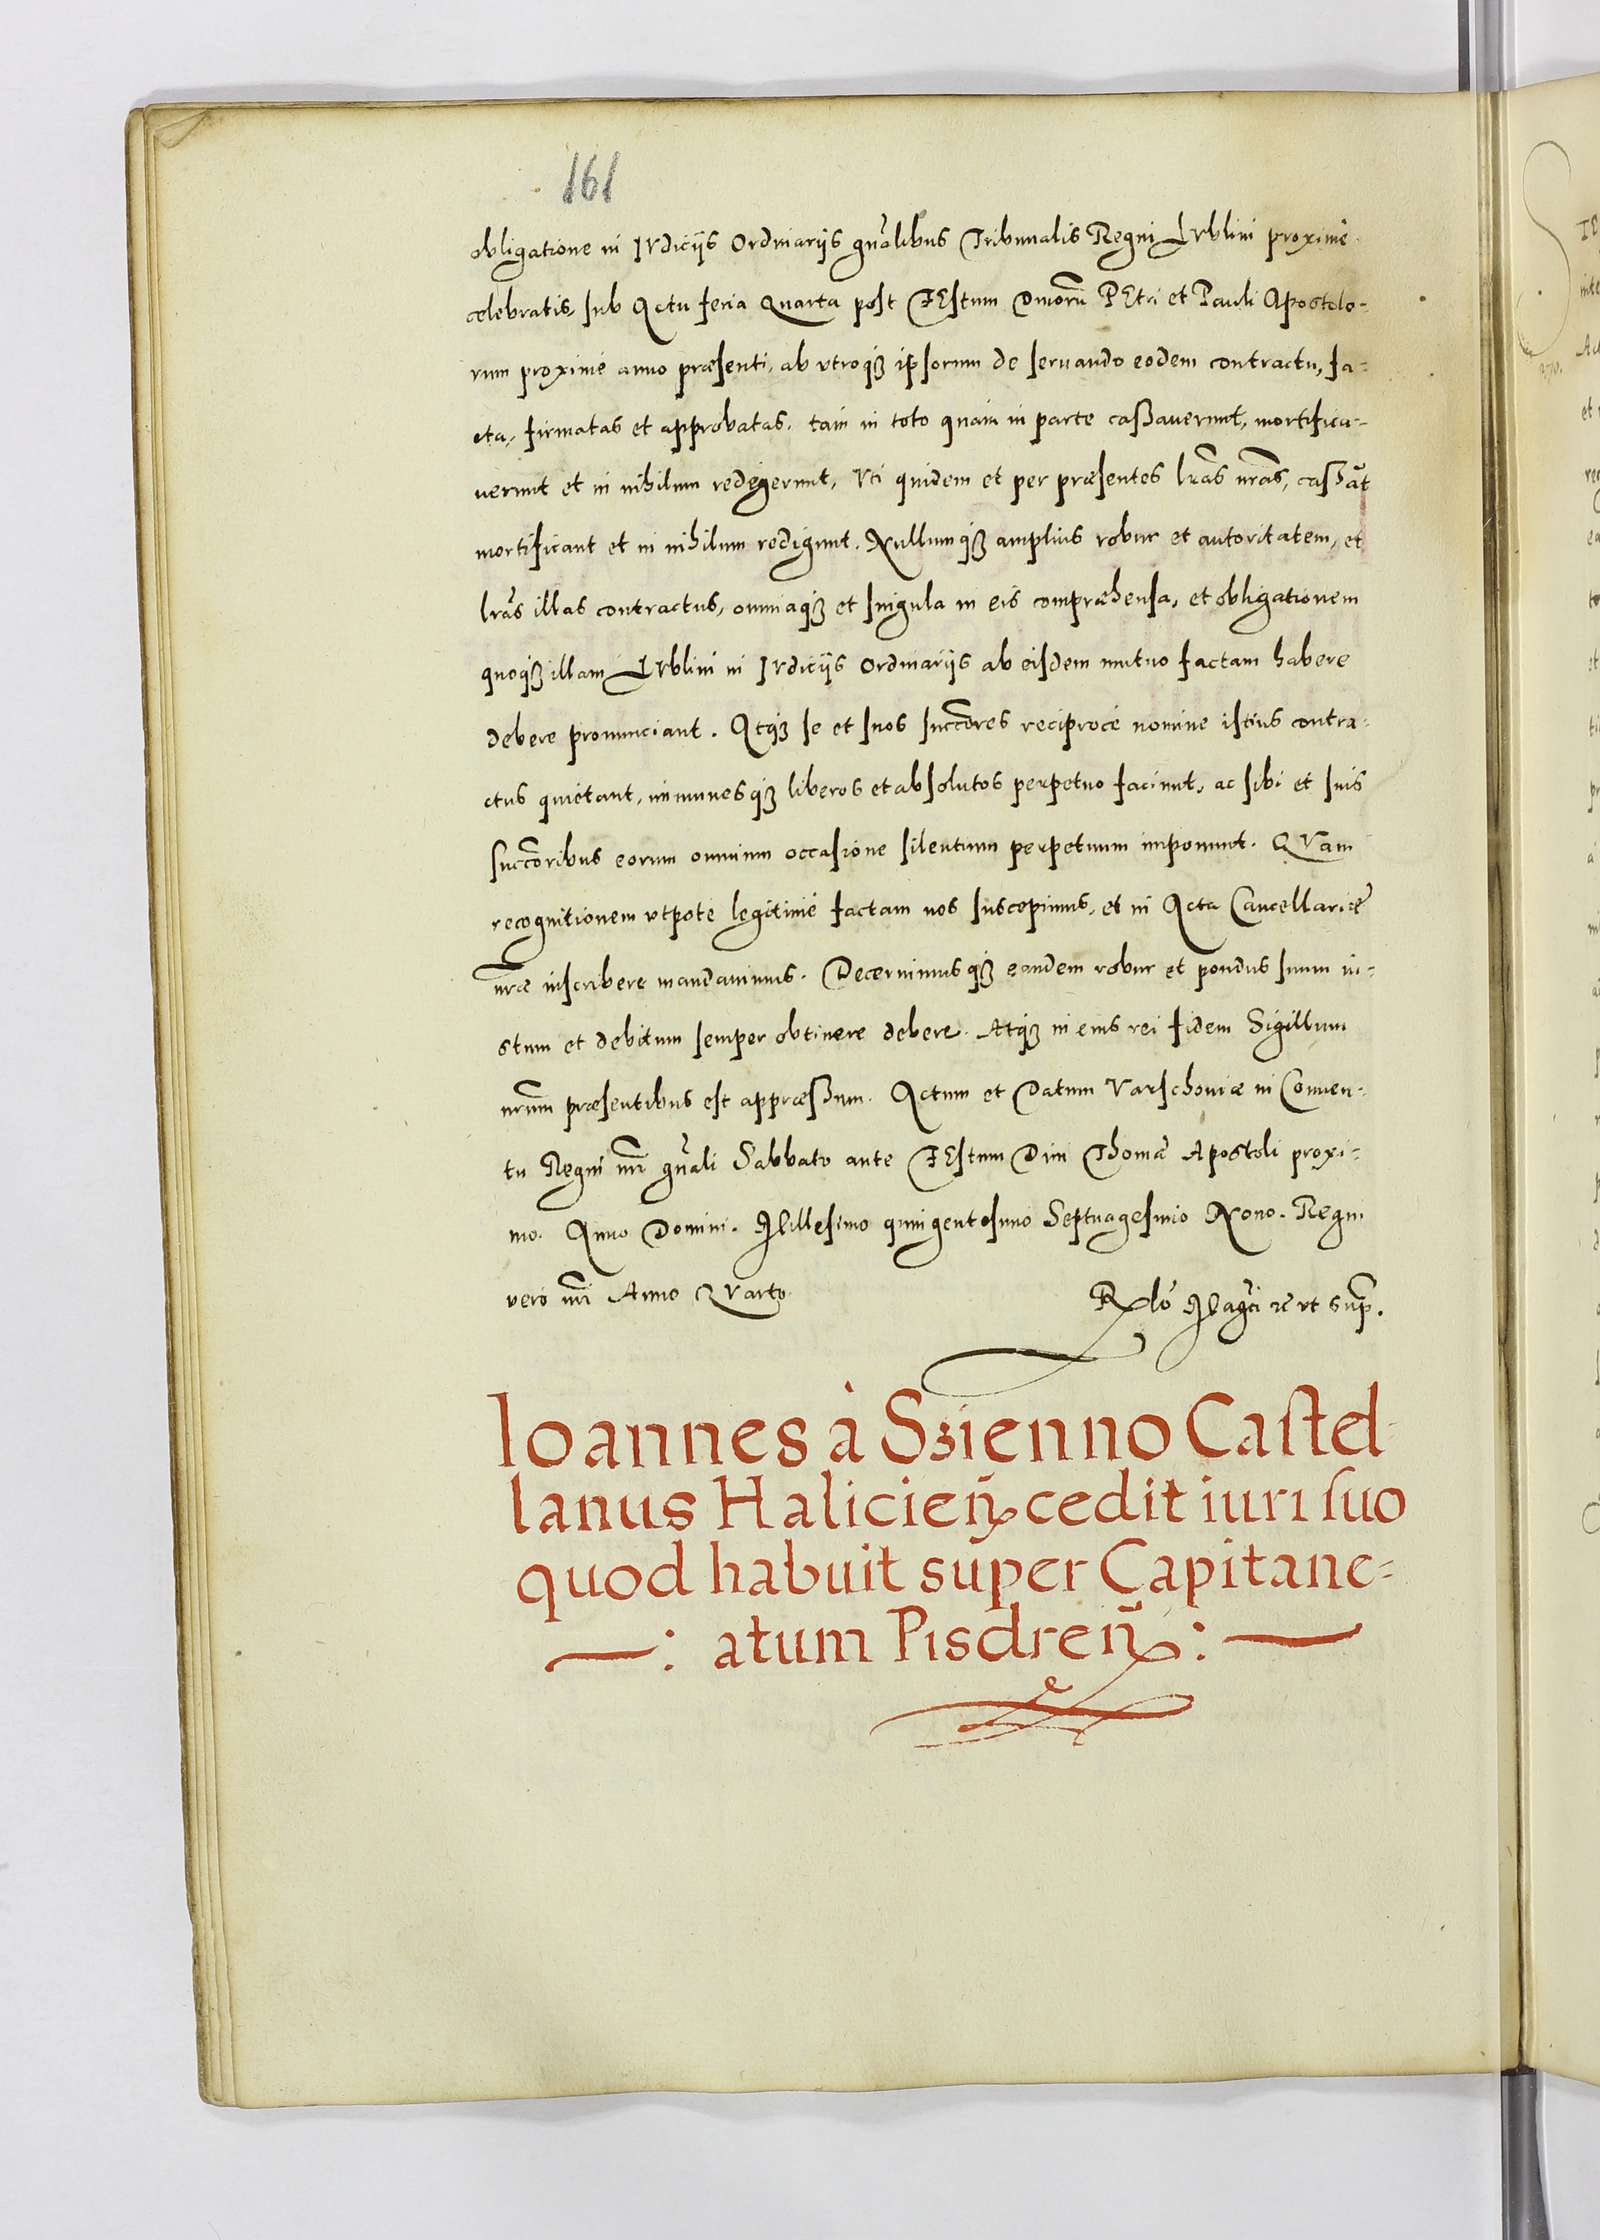 161
obligatione in IVdiciis Ordinariis gnãlibus Tribunalis Regni LVblini proximè
celebratis, sub Actu feria Quarta post FEstum Diuorũ PEtri et Pauli Apostolo-
rum proximè anno præsenti, ab utroq₃ ipsorum de seruando eodem contractu, fa-
cta, firmatas et approbatas, tam in toto quam in parte cassauerunt, mortifica-
uerunt et in nihilum redegerunt, Vti quidem et per præsentes lrãs nrãs, cassãt
mortificant et in nihilum redigunt. Nullumq₃ amplius robur et autoritatem, et
lrãs illas contractus, omniaq₃ et singula in eis compræhensa, et obligationem
quoq₃ illam LVblini in IVdiciis Ordinariis ab eisdem mutuo factam habere
debere pronunciant. Atq₃ se et suos succores reciprocè nomine istius contra-
ctus quietant, immunesq₃ liberos et absolutos perpetuo faciunt, ac sibi et suis
succoribus eorum omnium occasione silentium perpetuum imponunt. QVam
recognitionem utpote legitimè factam nos suscepimus, et in Acta Cancellariæ
nræ inscribere mandauimus. Decernimusq₃ eandem robur et pondus suum iu-
stum et debitum semper obtinere debere. Atq₃ in eius rei fidem Sigillum
nrum præsentibus est appræssum. Actum et Datum Varschouiæ in Conuen-
tu Regni nri gnãli Sabbato ante FEstum Diui Thomæ Apostoli proxi-
mo. Anno Domini. Millesimo quingentesimo Septuagesimo Nono. Regni
vero nri Anno QVarto.
Rlo Magci rc ut sup.
Ioannes à Szienno Castel-
lanus Halicieñ cedit iuri suo
quod habuit super Capitane-
: atum Pisdreñ :